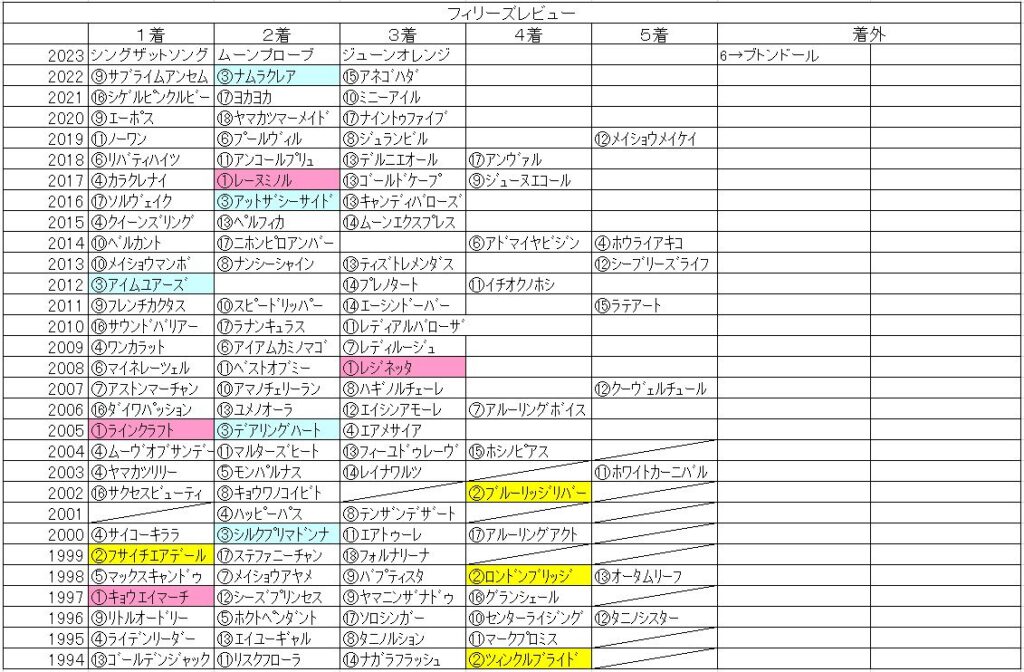 フィリーズレビュー
1着 2着 3着 4着 5着 着外
2023 シングザットソング ムーンプローブ ジューンオレンジ 6→ブトンドール
2022 ⑨サブライムアンセム ③ナムラクレア ⑮アネゴハダ
2021 ⑯シゲルピンクルビー ⑰ヨカヨカ ⑩ミニーアイル
2020 ⑨エーポス ⑱ヤマカツマーメイド ⑰ナイントゥファイブ
2019 ⑪ノーワン ⑥プールヴィル ⑧ジュランビル ⑫メイショウメイケイ
2018 ⑥リバティハイツ ⑪アンコールプリュ ⑬デルニエオール ⑰アンヴァル
2017 ④カラクレナイ ①レーヌミノル ⑬ゴールドケープ ⑨ジューヌエコール
2016 ⑰ソルヴェイク ③アットザシーサイド ⑬キャンディバローズ
2015 ④クイーンズリング ⑬ペルフィカ ⑭ムーンエクスプレス
2014 ⑩ベルカント ⑰ニホンピロアンバー ⑥アドマイヤビジン ④ホウライアキコ
2013 ⑩メイショウマンボ ⑧ナンシーシャイン ⑬ティズトレメンダス ⑫シーブリーズライフ
2012 ③アイムユアーズ ⑭プレノタート ⑪イチオクノホシ
2011 ⑨フレンチカクタス ⑩スピードリッパー ⑭エーシンドーバー ⑮ラテアート
2010 ⑯サウンドバリアー ⑰ラナンキュラス ⑪レディアルバローザ
2009 ④ワンカラット ⑥アイアムカミノマゴ ⑦レディルージュ
2008 ⑥マイネレーツェル ⑪ベストオブミー ①レジネッタ
2007 ⑦アストンマーチャン ⑩アマノチェリーラン ⑧ハギノルチェーレ ⑫クーヴェルチュール
2006 ⑯ダイワパッション ⑬ユメノオーラ ⑫エイシンアモーレ ⑦アルーリングボイス
2005 ①ラインクラフト ③デアリングハート ④エアメサイア
2004 ④ムーヴオブサンデー ⑪マルターズヒート ⑬フィーユドゥレーヴ ⑮ホシノピアス
2003 ④ヤマカツリリー ⑤モンパルナス ⑭レイナワルツ ⑪ホワイトカーニバル
2002 ⑯サクセスビューティ ⑧キョウワノコイビト ②ブルーリッジリバー
2001 ④ハッピーパス ⑧テンザンデザート
2000 ④サイコーキララ ③シルクプリマドンナ ⑪エアトゥーレ ⑰アルーリングアクト
1999 ②フサイチエアデール ⑰ステファニーチャン ⑱フォルナリーナ
1998 ⑤マックスキャンドゥ ⑦メイショウアヤメ ⑨バプティスタ ②ロンドンブリッジ ⑬オータムリーフ
1997 ①キョウエイマーチ ⑫シーズプリンセス ⑨ヤマニンザナドゥ ⑯グランシェール
1996 ⑨リトルオードリー ⑤ホクトペンダント ⑰ソロシンガー ⑩センターライジング ⑫タニノシスター
1995 ④ライデンリーダー ⑬エイユーギャル ⑧タニノルション ⑪マークプロミス
1994 ⑬ゴールデンジャック ⑪リスクフローラ ⑭ナガラフラッシュ ②ツィンクルブライド